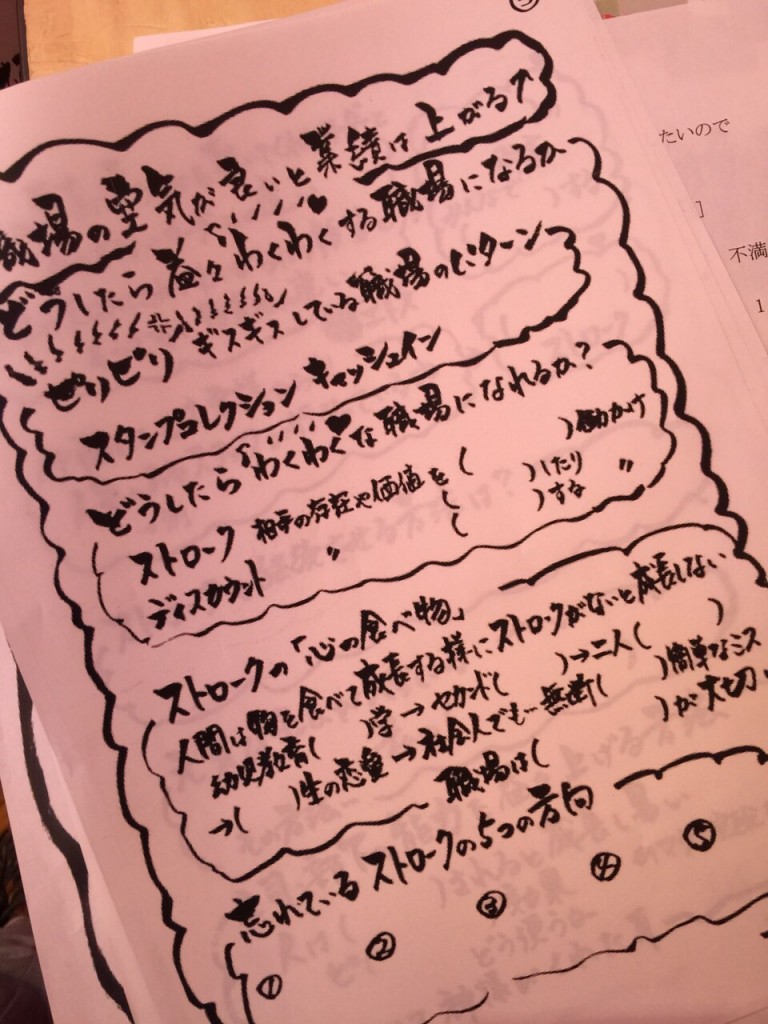 ③
職場の空気が良いと業績は上がる↑
どうしたら益々わくわくする職場になるか
ピリピリ ギスギスしている職場のパターン
スタンプコレクション キャッシュイン
どうしたらわくわくな職場になれるか?
ストローク 相手の存在や価値を( )働かけ
ディスカウント 〃 ( )したり
( )する 〃
ストロークの「心の食べ物」
人間は物を食べて成長する様にストロークがないと成長しない
幼児教育( )学→セカンド( )→二人( )
→( )生の恋愛→社会人でも…無断( )簡単なミス
職場は( )が大切
忘れているストロークの5つの方向
① ② ③ ④ ⑤
たいので
]
不満
1